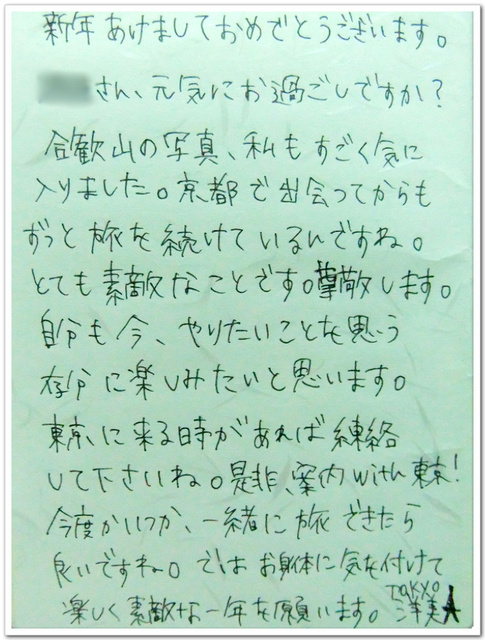 新年あけましておめでとうございます。
さん、元気にお過ごしですか？
合歓山の写真、私もすごく気に
入りました。京都で出会ってからも
ずっと旅を続けているんですね。
とても素敵なことです。尊敬します。
自分も今、やりたいことを思う
存分に楽しみたいと思います。
東京に来る時があれば連絡
して下さいね。是非、案内with東京！
今度かいつか、一緒に旅できたら
良いですね。ではお身体に気を付けて
楽しく素敵な一年を願います。
TOKYO
洋美